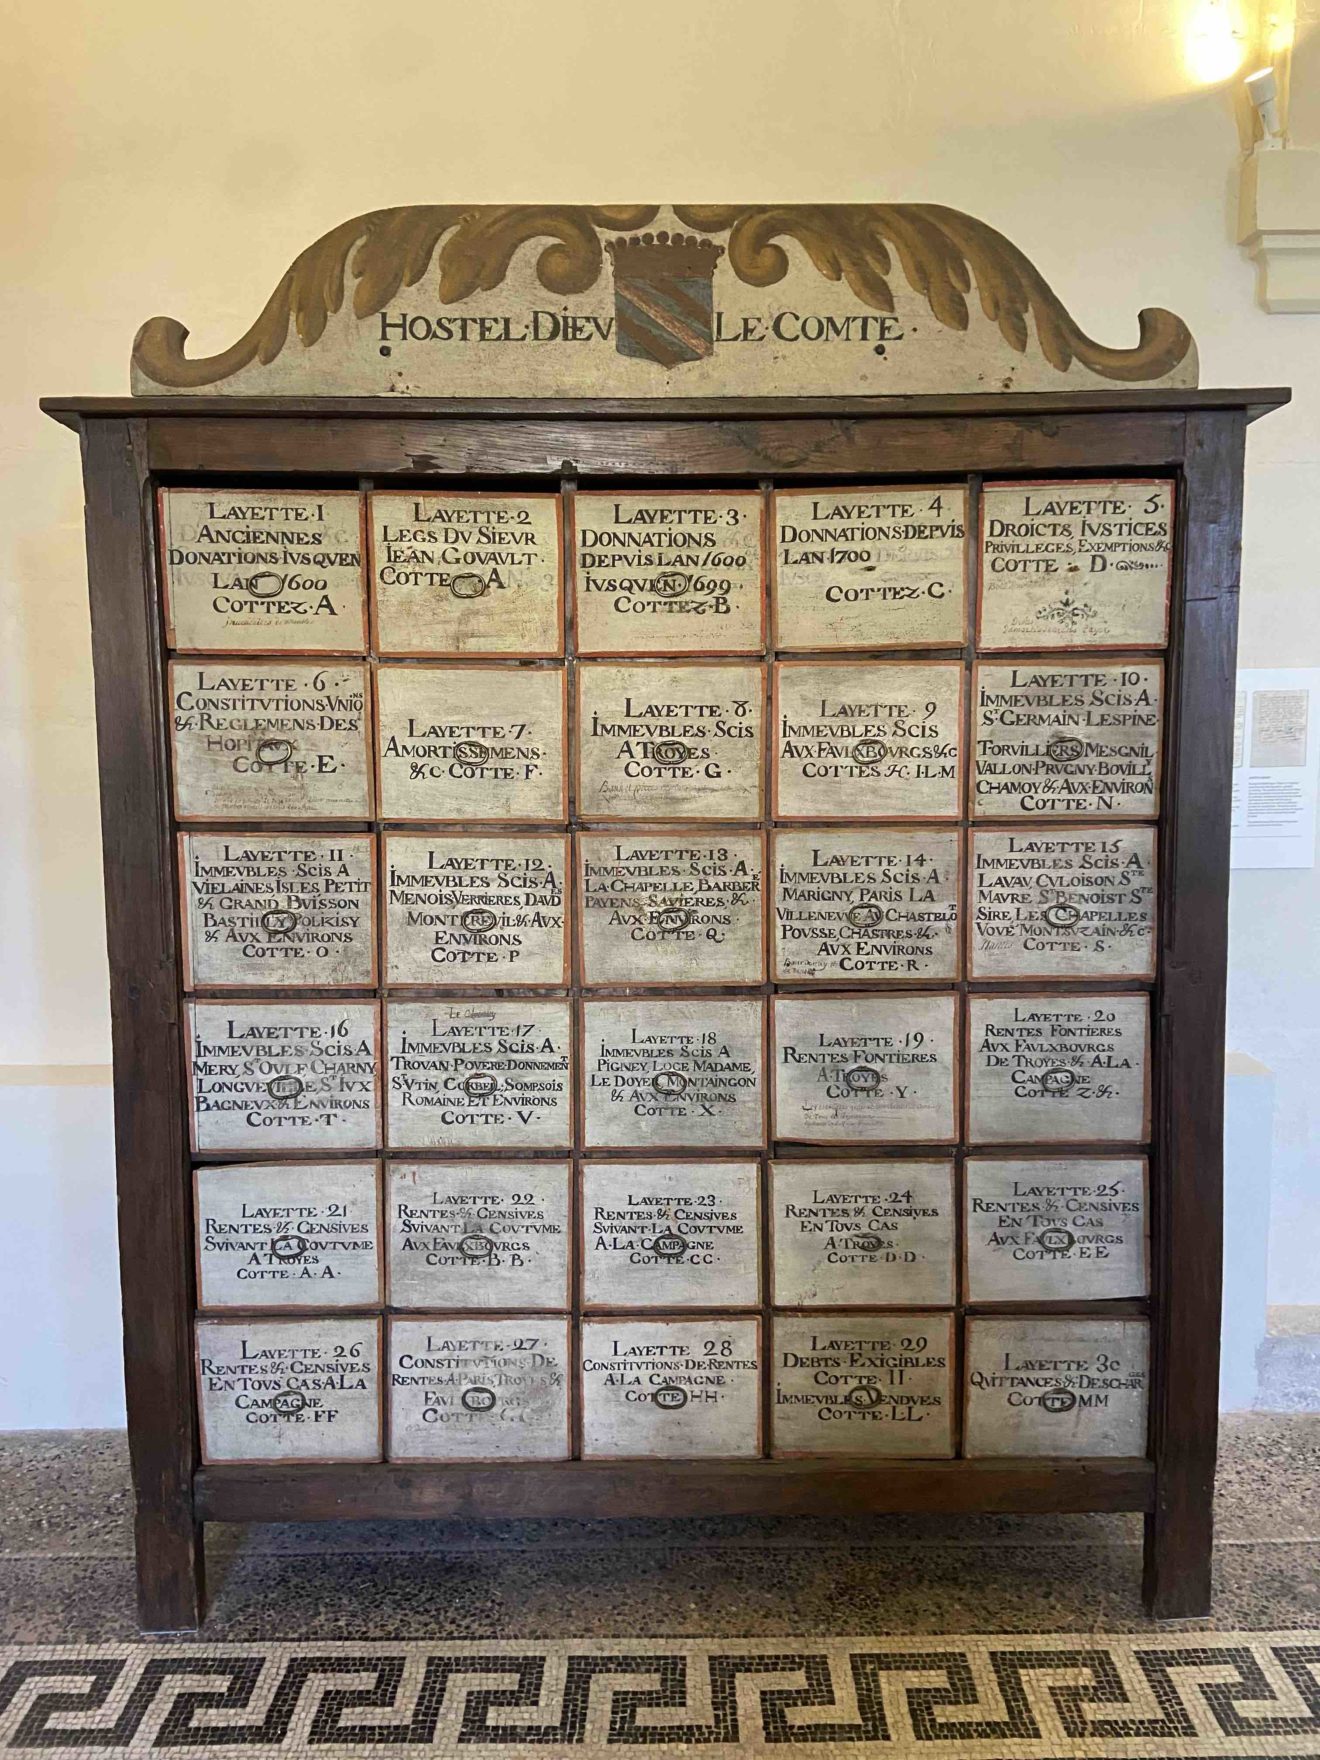 HOSTEL·DIEV LE·COMTE·
LAYETTE·1
ANCIENNES
DONATIONS·IVSQVEN
LAN 1600
COTTEZ·A·
LAYETTE·2
LEGS DV SIEVR
IEAN GOVAVLT·
COTTE A
LAYETTE·3·
DONNATIONS
DEPVIS LAN 1600
IVSQVEN·1699·
COTTEZ·B·
LAYETTE·4
DONNATIONS·DEPVIS
LAN 1700
COTTEZ·C·
LAYETTE·5·
DROICTS, IVSTICES
PRIVILLEGES, EXEMPTIONS &c
COTTE·D·
LAYETTE·6·
CONSTITVTIONS·VNIONS
&·REGLEMENS·DES
HOPITAUX
COTTE·E·
LAYETTE·7·
AMORTISSEMENS·
&C·COTTE·F·
LAYETTE·8·
IMMEVBLES·SCIS
A TROYES·
COTTE·G·
LAYETTE·9
IMMEVBLES SCIS
AVX·FAVLXBOVRGS&c
COTTES H·I·L·M
LAYETTE·10·
IMMEVBLES SCIS A·
ST GERMAIN·LESPINE·
TORVILLIERS MESGNIL
VALLON·PRVGNY·BOVILLT
CHAMOY &·AVX·ENVIRON
COTTE·N·
LAYETTE·11·
IMMEVBLES·SCIS A
VIELAINES ISLES PETIT
&·GRAND·BVISSON
& AVX ENVIRONS
COTTE·O·
LAYETTE·12·
IMMEVBLES SCIS·A·
MENOIS VERRIERES, DAVD
MONTREVIL·&·AVX·
ENVIRONS
COTTE·P
LAYETTE·13·
IMMEVBLES·SCIS·A·
LA·CHAPELLE, BARBER
PAYENS·SAVIERES,·&·
AVX·ENVIRONS·
COTTE·Q·
LAYETTE·14·
IMMEVBLES SCIS A·
MARIGNY, PARIS LA
VILLENEVVE AV CHASTELOT
POVSSE, CHASTRES·&·
AVX ENVIRONS
COTTE·R·
LAYETTE 15
IMMEVBLES SCIS·A·
LAVAV, CVLOISON STE
MAVRE ST BENOIST STE
SIRE, LES CHAPELLES
VOVE MONTSVZAIN·&c·
COTTE·S·
LAYETTE·16
IMMEVBLES·SCIS A
MERY, ST OVLF CHARNY
BAGNEVX &·ENVIRONS
COTTE·T·
LAYETTE·17·
IMMEVBLES SCIS·A·
TROVAN·POVERE·DONNEMENT
ST VTIN, CORBEIL, SOMPSOIS
ROMAINE ET ENVIRONS
COTTE·V·
LAYETTE·18
IMMEVBLES SCIS A
PIGNEY, LOGE MADAME,
LE DOYER MONTAINGON
&·AVX ENVIRONS
COTTE·X·
LAYETTE·19·
RENTES FONTIERES
A TROYES
COTTE·Y·
LAYETTE·20
RENTES FONTIERES
AVX FAVLXBOVRGS
DE TROYES·&·A·LA·
CAMPAGNE
COTTE Z·&·
LAYETTE·21
RENTES·&·CENSIVES
SVIVANT LA COVTVME
A TROYES
COTTE·A·A·
LAYETTE·22·
RENTES·&·CENSIVES
SVIVANT LA COVTVME
AVX FAVLXBOVRGS
COTTE·B·B·
LAYETTE·23·
RENTES·&·CENSIVES
SVIVANT·LA COVTVME
A·LA·CAMPAGNE
COTTE·CC·
LAYETTE·24
RENTES & CENSIVES
EN TOVS CAS
A TROYES·
COTTE·D·D·
LAYETTE·25·
RENTES·&·CENSIVES
EN TOVS CAS
AVX FAVLXBOVRGS
COTTE·EE
LAYETTE·26
RENTES &·CENSIVES
EN TOVS CAS·A·LA
CAMPAGNE
COTTE·FF
LAYETTE·27·
CONSTITVTIONS·DE
RENTES·A·PARIS, TROYES &
FAVLXBOVRGS
COTTE·GG
LAYETTE 28
CONSTITVTIONS·DE·RENTES
A·LA CAMPAGNE·
COTTE·HH·
LAYETTE·29
DEBTS·EXIGIBLES
COTTE·II
IMMEVBLES·VENDVES
COTTE·LL·
LAYETTE 30
QVITTANCES &·DESCHARGES
COTTE MM